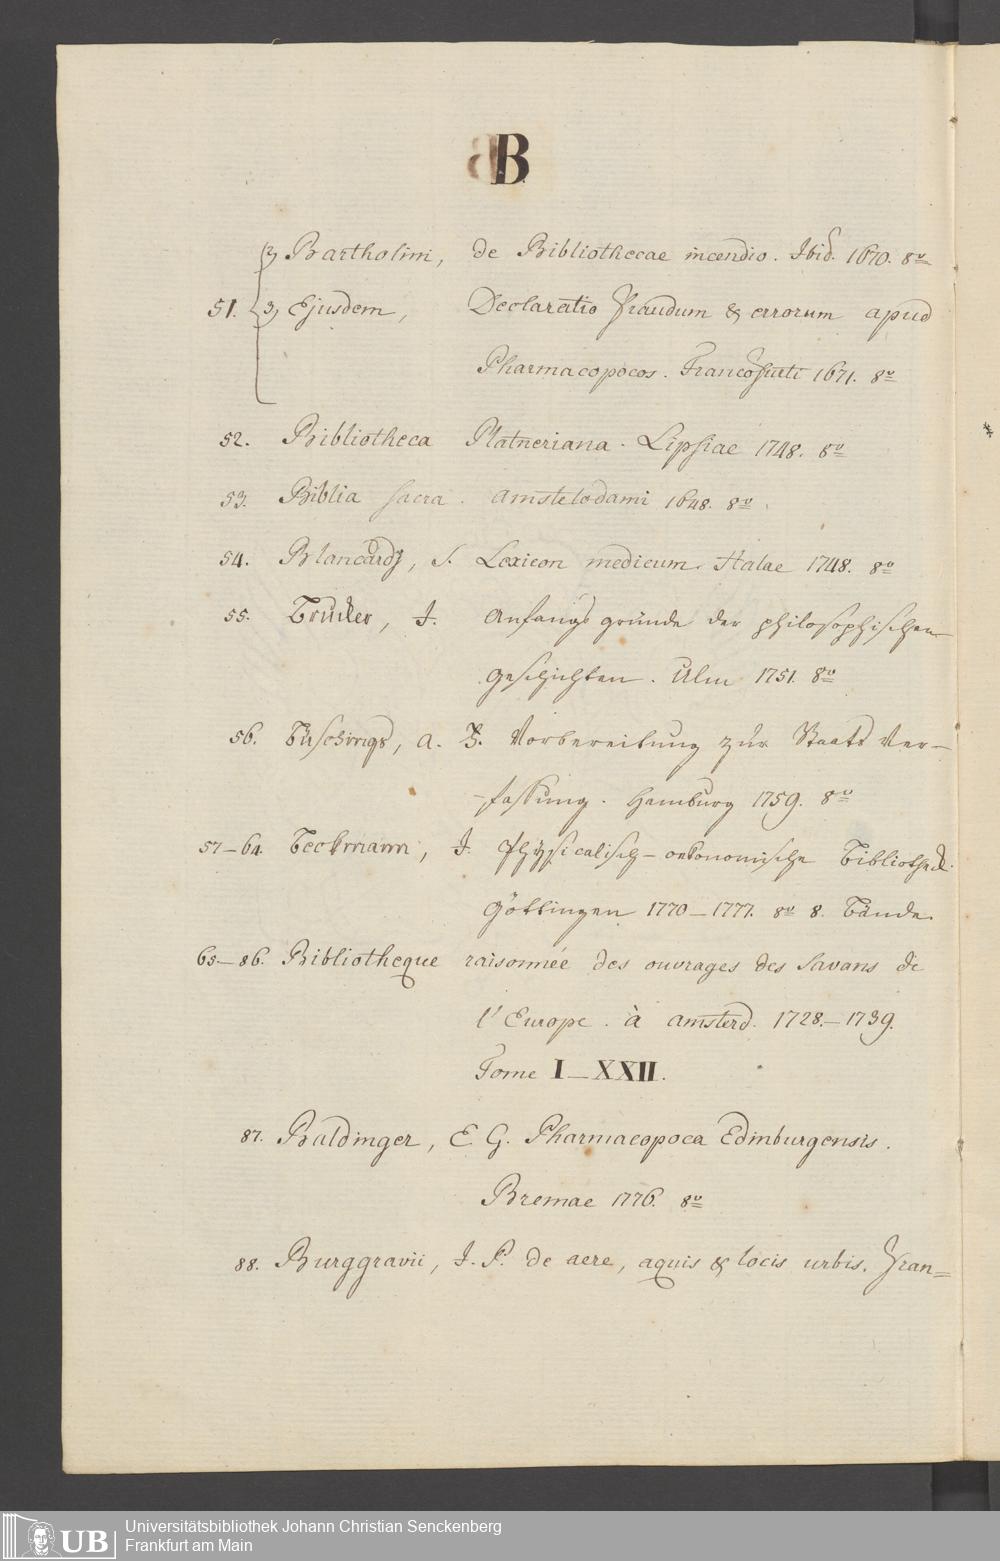 B
2, Bartholini, de Bibliothecae incendio. Ibid. 1670. 8º
51. 3, Ejusdem, Declaratio fraudum & errorum apud
Pharmacopoeos. Francofurti 1671. 8º
52. Bibliotheca Platneriana. Lipsiae 1748. 8º
53. Biblia sacra. Amstelodami 1648. 8º
54. Blancardj, S. Lexicon medicum. Halae 1748. 8º
55. Brucker, J. Anfangsgründe der philosophischen
Geschichten. Ulm 1751. 8º
56. Büschings, A. F. Vorbereitung zur Staats Ver-
-fassung. Hamburg 1759. 8º
57-64. Beckmann, J. Physicalisch-oekonomische Bibliotheck.
Göttingen 1770-1777. 8º 8. Bände.
65-86. Bibliotheque raisonnée des ouvrages des Savans de
l'Europe. à Amsterd. 1728.-1739.
Tome I-XXII.
87. Baldinger, E. G. Pharmacopoea Edinburgensis.
Bremae 1776. 8º
88. Burggravii, J. P. de aere, aquis & locis urbis. Fran=
UB
Universitätsbibliothek Johann Christian Senckenberg
Frankfurt am Main